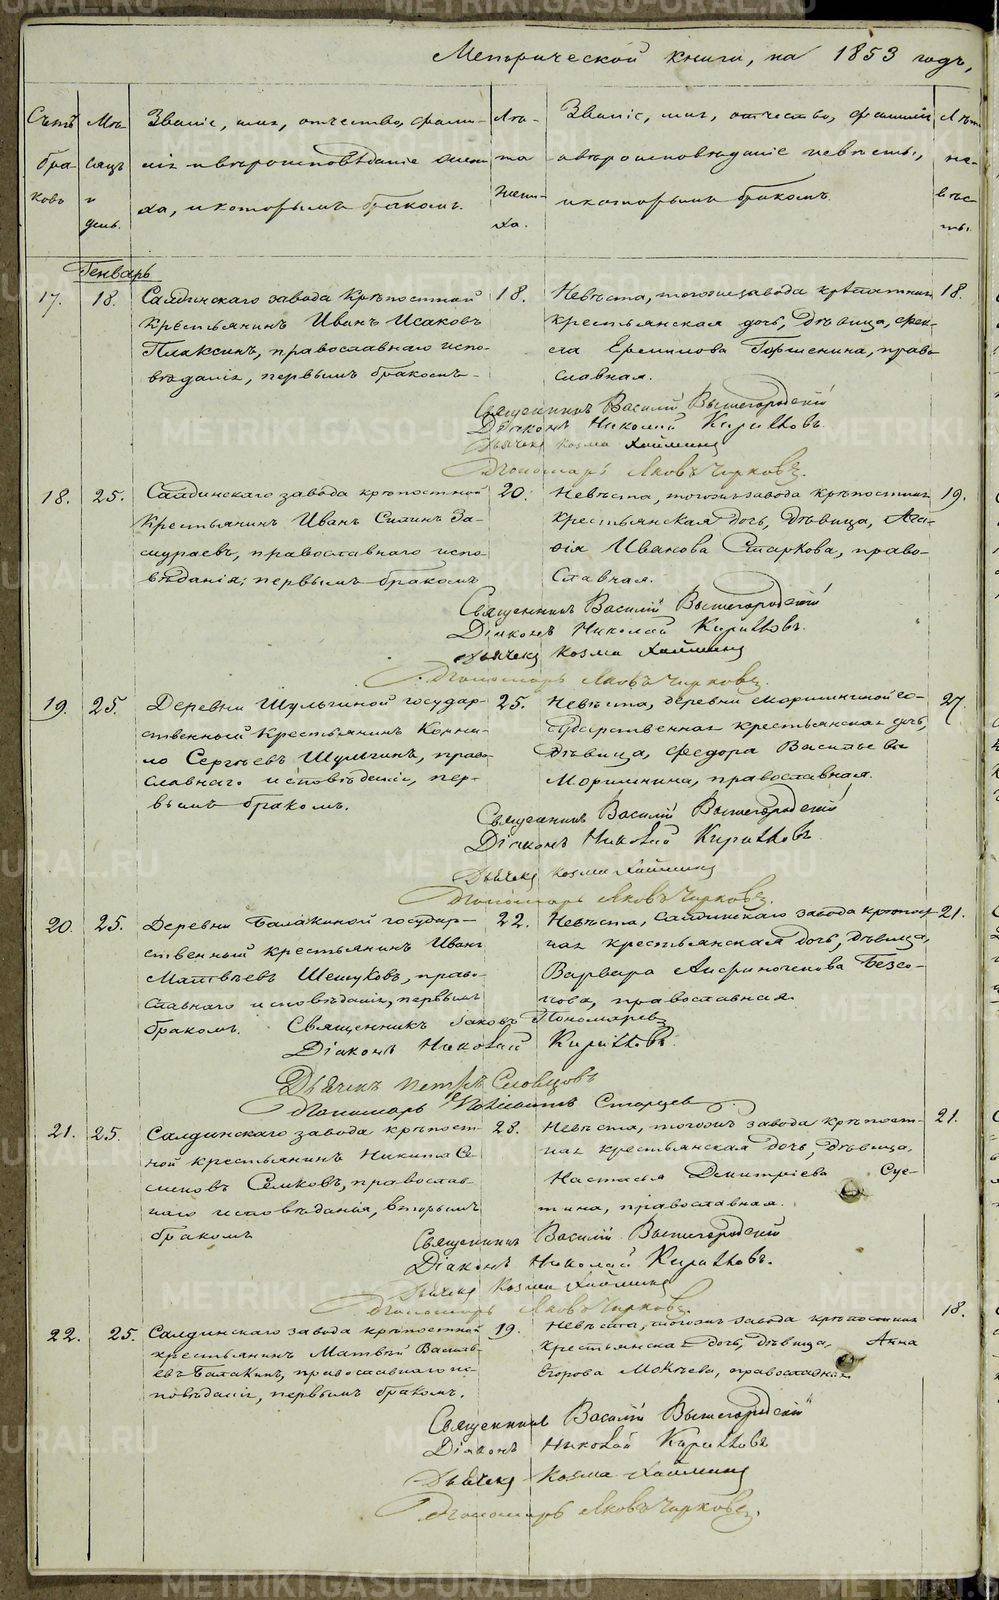 Метрической книги, на 1853 годъ,
Счетъ браковъ
Мѣсяцъ и день.
Званіе, имя, отчество, фами-
лія и вѣроисповѣданіе жени-
ха, и которымъ бракомъ.
Лѣта жениха.
Званіе, имя, отчество, фамилія
и вѣроисповѣданіе невѣсты,
и которымъ бракомъ.
Лѣта невѣсты.
Генварь
17. 18. Салдинскаго завода крѣпостной
крестьянинъ Иванъ Исаковъ
Плаксинъ, православнаго испо-
вѣданія, первымъ бракомъ
18.
Невѣста, тогожъ завода крѣпостная
крестьянская дочь, дѣвица, Фек-
ла Ермилова Горшенина, право-
славная.
18.
Священникъ Василій Вышегородскій
Діаконъ Николай Кирилловъ
Дьячекъ Козма Хаймины
Пономарь Яковъ Чирковъ.
18. 25. Салдинскаго завода крѣпостной
крестьянинъ Иванъ Силинъ За-
мураевъ, православнаго испо-
вѣданія, первымъ бракомъ
20.
Невѣста, тогожъ завода крѣпостная
крестьянская дочь, дѣвица, Ага-
фія Иванова Старкова, право-
славная.
19.
Священникъ Василій Вышегородскій
Діаконъ Николай Кирилловъ.
Дьячекъ Козма Хаймины
Пономарь Яковъ Чирковъ.
19. 25. Деревни Шульгиной государ-
ственный крестьянинъ Корни-
ло Сергѣевъ Шульгинъ, право-
славнаго исповѣданія, пер-
вымъ бракомъ.
25.
Невѣста, деревни Моршининой го-
сударственная крестьянская дочь,
дѣвица, Федора Васильева
Моршинина, православная.
27
Священникъ Василій Вышегородскій
Діаконъ Николай Кирилловъ
Дьячекъ Козма Хаймины
Пономарь Яковъ Чирковъ.
20. 25. Деревни Балакиной государ-
ственный крестьянинъ Иванъ
Матвѣевъ Шешуковъ, право-
славнаго исповѣданія, первымъ
бракомъ.
22.
Невѣста, Салдинскаго завода крѣпост-
ная крестьянская дочь, дѣвица,
Варвара Анфиногенова Безсо-
нова, православная
21.
Священникъ Іаковъ Пономаревъ
Діаконъ Николай Кирилловъ.
Дьячекъ Петръ Словцовъ
Пономарь Старцевъ.
21. 25. Салдинскаго завода крѣпост-
ной крестьянинъ Никита Се-
меновъ Семковъ, православ-
наго исповѣданія, вторымъ
бракомъ
28.
Невѣста, тогожъ завода крѣпост-
ная крестьянская дочь, дѣвица,
Настасья Дмитріева Суе-
тина, православная.
21.
Священникъ Василій Вышегородскій
Діаконъ Николай Кирилловъ.
Дьячекъ Козма Хаймины
Пономарь Яковъ Чирковъ.
22. 25. Салдинскаго завода крѣпостной
крестьянинъ Матвѣй Василь-
евъ Балакинъ, православнаго ис-
повѣданія, первымъ бракомъ.
19.
Невѣста, тогожъ завода крѣпостная
крестьянская дочь, дѣвица, Анна
Егорова Мокѣева, православная
18.
Священникъ Василій Вышегородскій
Діаконъ Николай Кирилловъ
Дьячекъ Козма Хаймины
Пономарь Яковъ Чирковъ.
METRIKI.GASO-URAL.RU